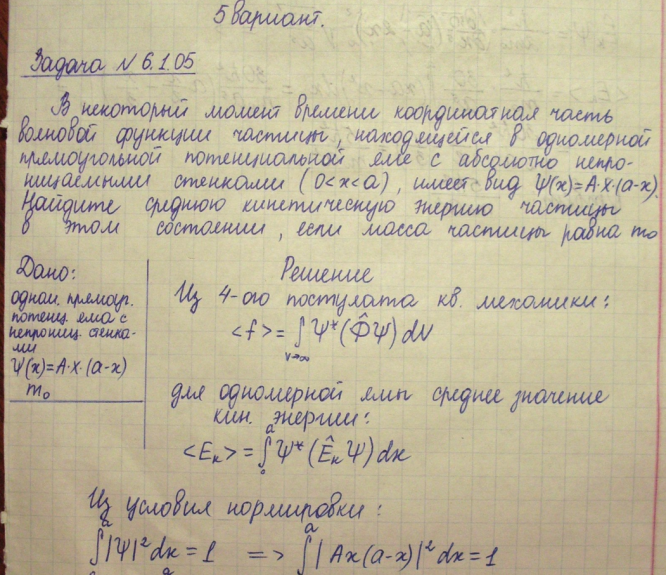 5 вариант.
Задача № 6.1.05
В некоторый момент времени координатная часть
волновой функции частицы, находящейся в одномерной
прямоугольной потенциальной яме с абсолютно непро-
ницаемыми стенками (0<x<a), имеет вид Ψ(x)=A·x·(a-x).
Найдите среднюю кинетическую энергию частицы
в этом состоянии, если масса частицы равна m₀
Дано:
одном. прямоуг.
потенц. яма с
непрониц. стенка-
ми
Ψ(x)=A·x·(a-x)
m₀
Решение
Из 4-ого постулата кв. механики:
<f> = ∫ Ψ*(Φ̂Ψ) dV
V→∞
для одномерной ямы среднее значение
кин. энергии:
<Eₖ> = ∫₀ᵃ Ψ*(ÊₖΨ) dx
Из условия нормировки:
∫₀ᵃ |Ψ|² dx = 1 => ∫ᵃ | Ax(a-x)|² dx = 1